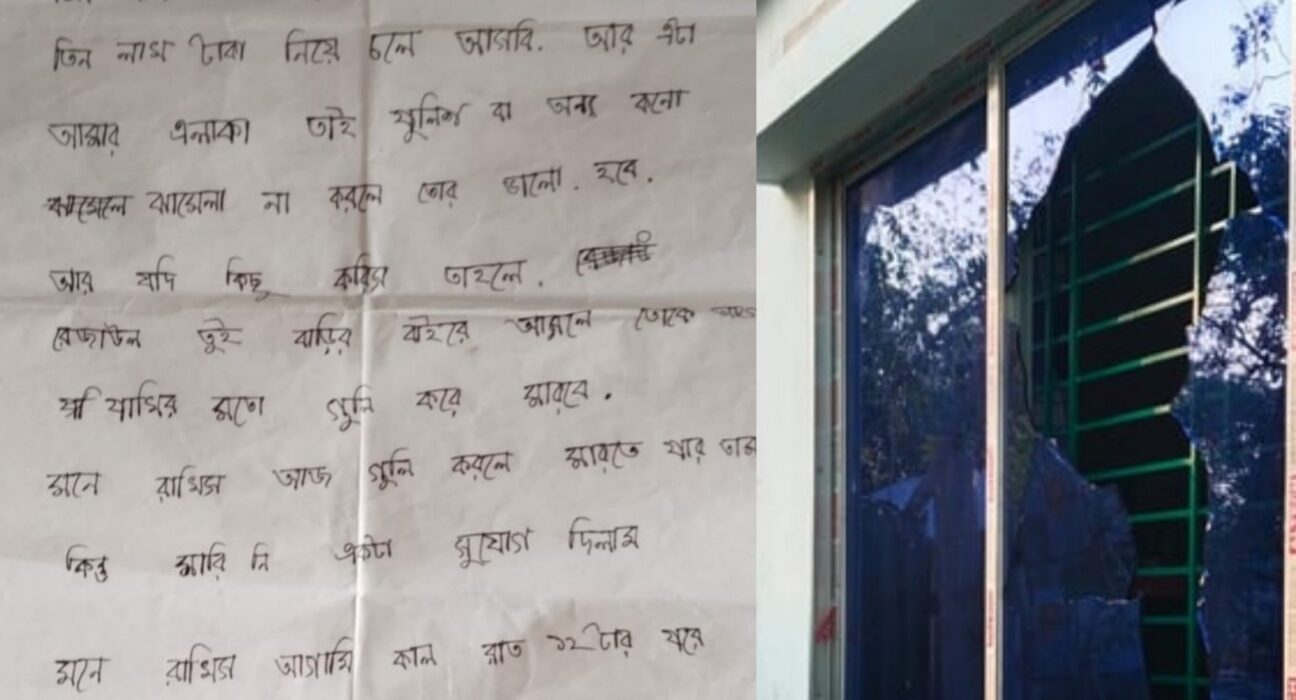 তিন লাখ টাকা নিয়ে চলে আসবি. আর এটা
আমার এলাকা তাই পুলিশ বা অন্য কনো
ঝামেলে ঝামেলা না করলে তোর ভালো. হবে.
আর যদি কিছু করিস তাহলে.
রেজাউল তুই বাড়ির বাইরে আসলে তোকে
পাখির মতো গুলি করে মারবে.
মনে রাখিস আজ গুলি করলে মারতে পার তাম
কিন্তু মারি নি একটা সুযোগ দিলাম
মনে রাখিস আগামি কাল রাত ১২টার পরে